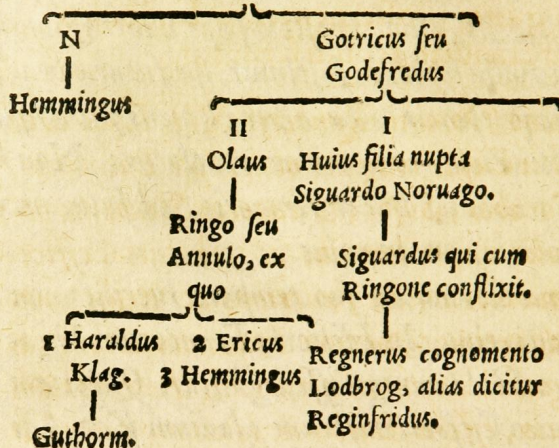 N
Hemmingus
Gotricus seu
Godefredus
II
Olaus
Ringo seu
Annulo, ex
quo
1 Haraldus
Klag.
Guthorm.
2 Ericus
3 Hemmingus
I
Huius filia nupta
Siguardo Noruago.
Siguardus qui cum
Ringone conflixit.
Regnerus cognomento
Lodbrog, alias dicitur
Reginfridus.